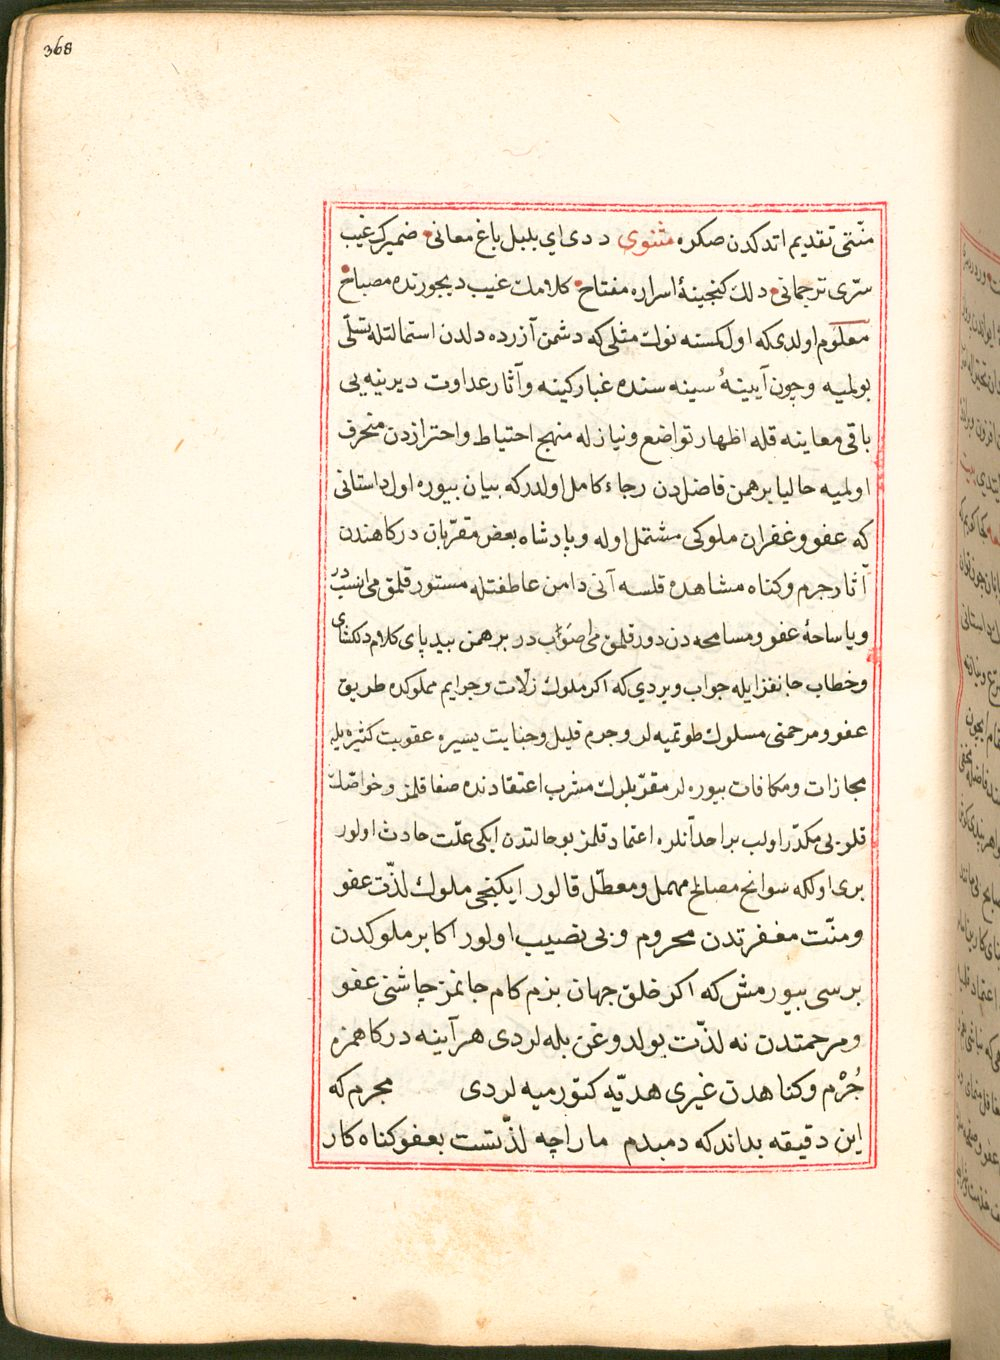 368
منّتی تقدیم اتدکدن صکره مثنوی ددی ای بلبل باغ معانی ضمیرک غیب
سرّی ترجمانی دلک کنجینۀ اسراره مفتاح کلامک غیب دیجورنده مصباح
معلوم اولدی که اول کمسنه نوک مثلی که دشمن آزرده دلدن استمالتله تسلّی
بولمیه وچون آیینۀ سینه سنده غبار کینه وآثار عداوت دیرینه یی
باقی معاینه قله اظهار تواضع ونیازله منهج احتیاط واحترازدن منحرف
اولمیه حالیا برهمن فاضلدن رجاء کامل اولدرکه بیان بیوره اول داستانی
که عفو وغفران ملوکی مشتمل اوله وپادشاه بعض مقرّبان درکاهندن
آثار جرم وکناه مشاهده قلسه آنی دامن عاطفتله مستور قلمق می انسبدر
ویا ساحۀ عفو ومسامحه دن دور قلمق می اصوابدر برهمن بیدپای کلام دلکشای
وخطاب جانفزایله جواب ویردی که اکر ملوک زلّات وجرایم مملوکده طریق
عفو ومرحمتی مسلوک طوتمیه لر وجرم قلیل وجنایت یسیره عقوبت کثیره یله
مجازات ومکافات بیوره لر مقرّبلرک مشرب اعتقادنده صفا قلمز وخواصّک
قلوبی مکدّر اولب براحد آنلره اعتماد قلمز بوحالتدن ایکی علّت حادث اولور
بری اولکه سوانح مصالح مهمل ومعطّل قالور ایکنجی ملوک لذّت عفو
ومنّت مغفرتدن محروم وبی نصیب اولور اکابر ملوکدن
برسی بیورمش که اکر خلق جهان بزم کام جانمز چاشنی عفو
ومرحمتدن نه لذّت بولدوغن بله لردی هرآینه درکاهمزه
جُرْم وکناهدن غیری هدیّه کتورمیه لردی مجرم که
این دقیقه بداند که دمبدم ما را چه لذّتست بعفو کناه کار